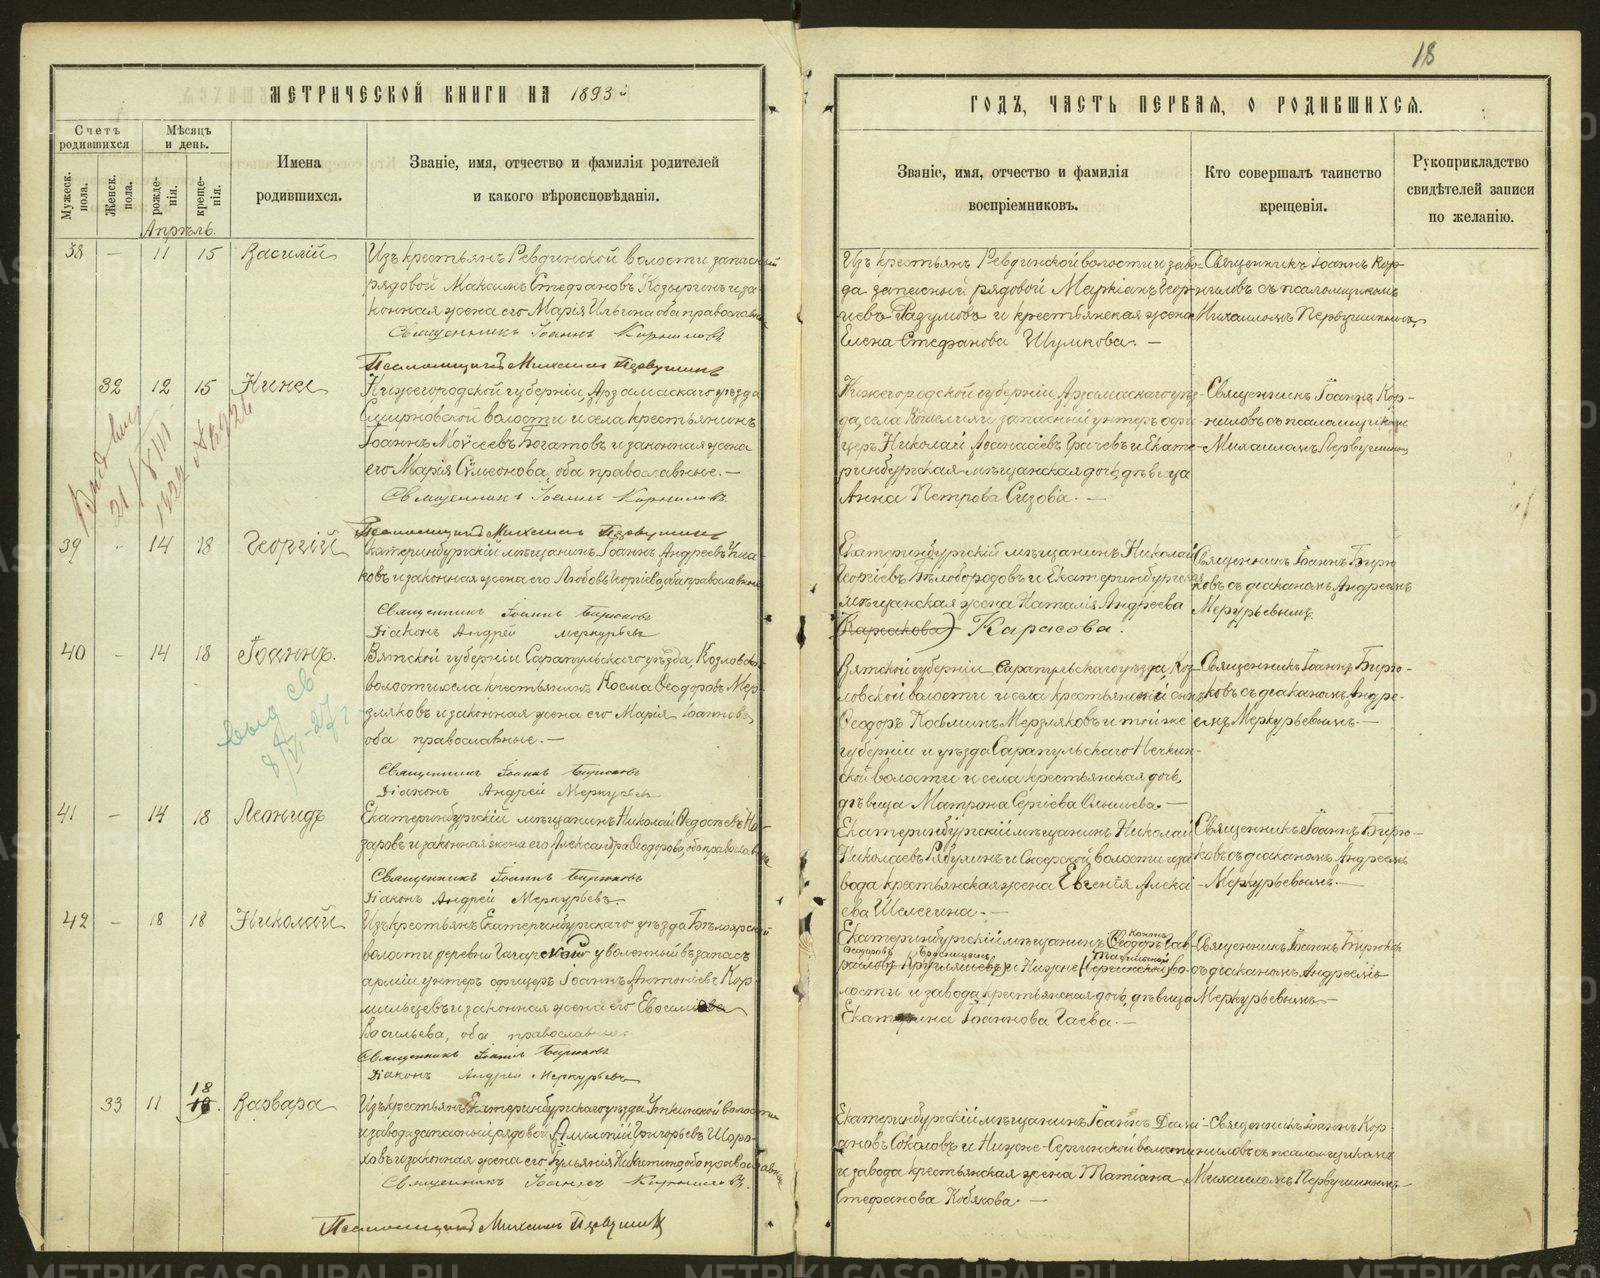 МЕТРИЧЕСКОЙ КНИГИ НА 1893 й
Счетъ родившихся
Мѣсяцъ и день.
Мужеск. пола.
Женск. пола.
рожденія.
крещенія.
Имена родившихся.
Званіе, имя, отчество и фамилія родителей
и какого вѣроисповѣданія.
Апрѣль.
38 — 11 15 Василій
Изъ крестьянъ Ревдинской волости запасный
рядовой Максимъ Стефановъ Козыринъ и за-
конная жена его Марія Ильина оба православные
Священникъ Іоаннъ Корниловъ
Псаломщикъ Михаилъ Первушинъ
32 12 15 Нина
Нижегородской губерніи, Арзамаскаго уѣзда
Смирновской волости и села крестьянинъ
Іоаннъ Моѵсеевъ Богатовъ и законная жена
его Марія Сѵмеонова, оба православные. —
Священникъ Іоаннъ Корниловъ
Псаломщикъ Михаилъ Первушинъ
39 - 14 18 Георгій
Екатеринбургскій мѣщанинъ Іоаннъ Андреевъ
ковъ и законная жена его Любовь Георгіева, оба православные
Священникъ Іоаннъ Бирюковъ
Діаконъ Андрей Меркурьевъ
40 — 14 18 Іоаннъ.
Вятской губерніи Сарапульскаго уѣзда, Козловской
волости и села крестьянинъ Косма Ѳеодоровъ Мер-
зляковъ и законная жена его Марія Іоаннова,
оба православные. —
Священникъ Іоаннъ Бирюковъ
Діаконъ Андрей Меркурьевъ
41 — 14 18 Леонидъ
Екатеринбургскій мѣщанинъ Николай Ѳедосѣевъ На-
заровъ и законная жена его Александра Ѳеодорова, оба православные
Священникъ Іоаннъ Бирюковъ
Діаконъ Андрей Меркурьевъ.
42 — 18 18 Николай
Изъ крестьянъ Екатеринбургскаго уѣзда Бѣлоярской
волости деревни Гагарской уволенный въ запасъ
арміи унтеръ офицеръ Іоаннъ Антоніевъ Кор-
мильцевъ и законная жена его
Васильева, оба православные.
Священникъ Іоаннъ Бирюковъ
Діаконъ Андрей Меркурьевъ
33 11 18 Варвара
Изъ крестьянъ Екатеринбургскаго уѣзда Уткинской волости
и завода запасный рядовой Григорьевъ Шоро-
ховъ и законная жена его Іуліанія Никитина оба православные
Священникъ Іоаннъ Корниловъ.
Псаломщикъ Михаилъ Первушинъ
18
ГОДЪ, ЧАСТЬ ПЕРВАЯ, О РОДИВШИХСЯ.
Званіе, имя, отчество и фамилія
воспріемниковъ.
Кто совершалъ таинство
крещенія.
Рукоприкладство
свидѣтелей записи
по желанію.
Изъ крестьянъ Ревдинской волости и заво-
да запасный рядовой Маркіанъ Геор-
гіевъ Разумовъ и крестьянская жена
Елена Стефанова Шумкова. —
Священникъ Іоаннъ Кор-
ниловъ съ псаломщикомъ
Михаиломъ Первушинымъ
Нижегородской губерніи Арзамаскаго уѣз-
да, села запасный унтеръ офи-
церъ Николай Аѳанасіевъ Грачевъ и Екате-
ринбургская мѣщанская дочь, дѣвица
Анна Петрова Сизова. —
Священникъ Іоаннъ Кор-
ниловъ съ псаломщикомъ
Михаиломъ Первушинымъ
Екатеринбургскій мѣщанинъ Николай
Георгіевъ Бѣлобородовъ и Екатеринбургская
мѣщанская жена Наталія Андреева
(Карсакова) Карасова.
Священникъ Іоаннъ Бирю-
ковъ съ діакономъ Андреемъ
Меркурьевымъ.
Вятской губерніи, Сарапульскаго уѣзда, Коз-
ловской волости и села крестьянскій сынъ
Ѳеодоръ Косминъ Мерзляковъ и той же
губерніи и уѣзда Сарапульскаго Нечкин-
ской волости и села крестьянская дочь,
дѣвица Матрона Сергіева —
Священникъ Іоаннъ Бирю-
ковъ съ діакономъ Андре-
емъ Меркурьевымъ. —
Екатеринбургскій мѣщанинъ Николай
Николаевъ Рябулинъ и волости и за-
вода крестьянская жена Евгенія Алексі-
ева Шелегина. —
Священникъ Іоаннъ Бирю-
ковъ съ діакономъ Андреемъ
Меркурьевымъ. —
Екатеринбургскій мѣщанинъ
и Нижне Тагильской во-
лости и завода, крестьянская дочь, дѣвица
Екатерина Іоаннова Гаева. —
Священникъ Іоаннъ Бирюковъ
съ діакономъ Андреемъ
Меркурьевымъ —
Екатеринбургскій мѣщанинъ Іоаннъ Дамі-
ановъ Соколовъ и Нижне-Сергинской волости
и завода крестьянская жена Татіана
Стефанова Кобякова. —
Священникъ Іоаннъ Кор-
ниловъ съ псаломщикомъ
Михаиломъ Первушинымъ —
METRIKI.GASO-URAL.RU